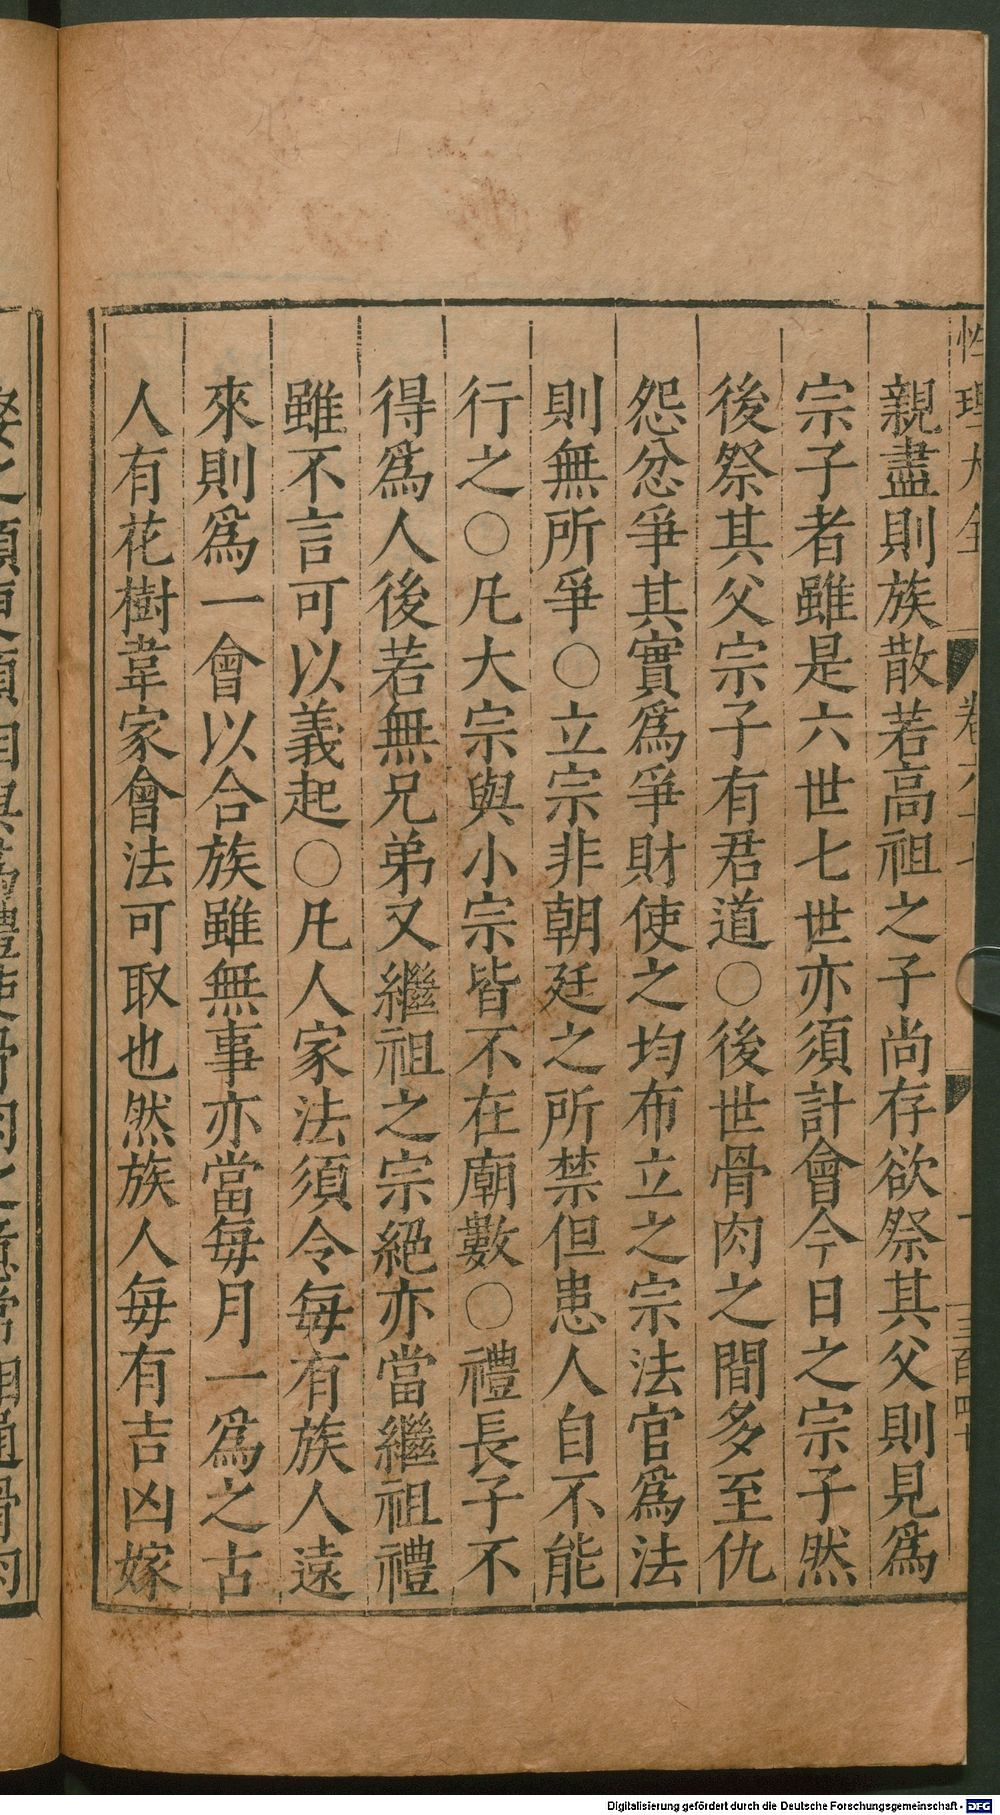 性理大全 卷六十七
親盡則族散若高祖之子尚存欲祭其父則見爲
宗子者雖是六世七世亦須計會今日之宗子然
後祭其父宗子有君道○後世骨肉之間多至仇
怨忿爭其實爲爭財使之均布立之宗法官爲法
則無所爭○立宗非朝廷之所禁但患人自不能
行之○凡大宗與小宗皆不在廟數○禮長子不
得爲人後若無兄弟又繼祖之宗絕亦當繼祖禮
雖不言可以義起○凡人家法須令每有族人遠
來則爲一會以合族雖無事亦當每月一爲之古
人有花樹韋家會法可取也然族人每有吉凶嫁
Digitalisierung gefördert durch die Deutsche Forschungsgemeinschaft - DFG